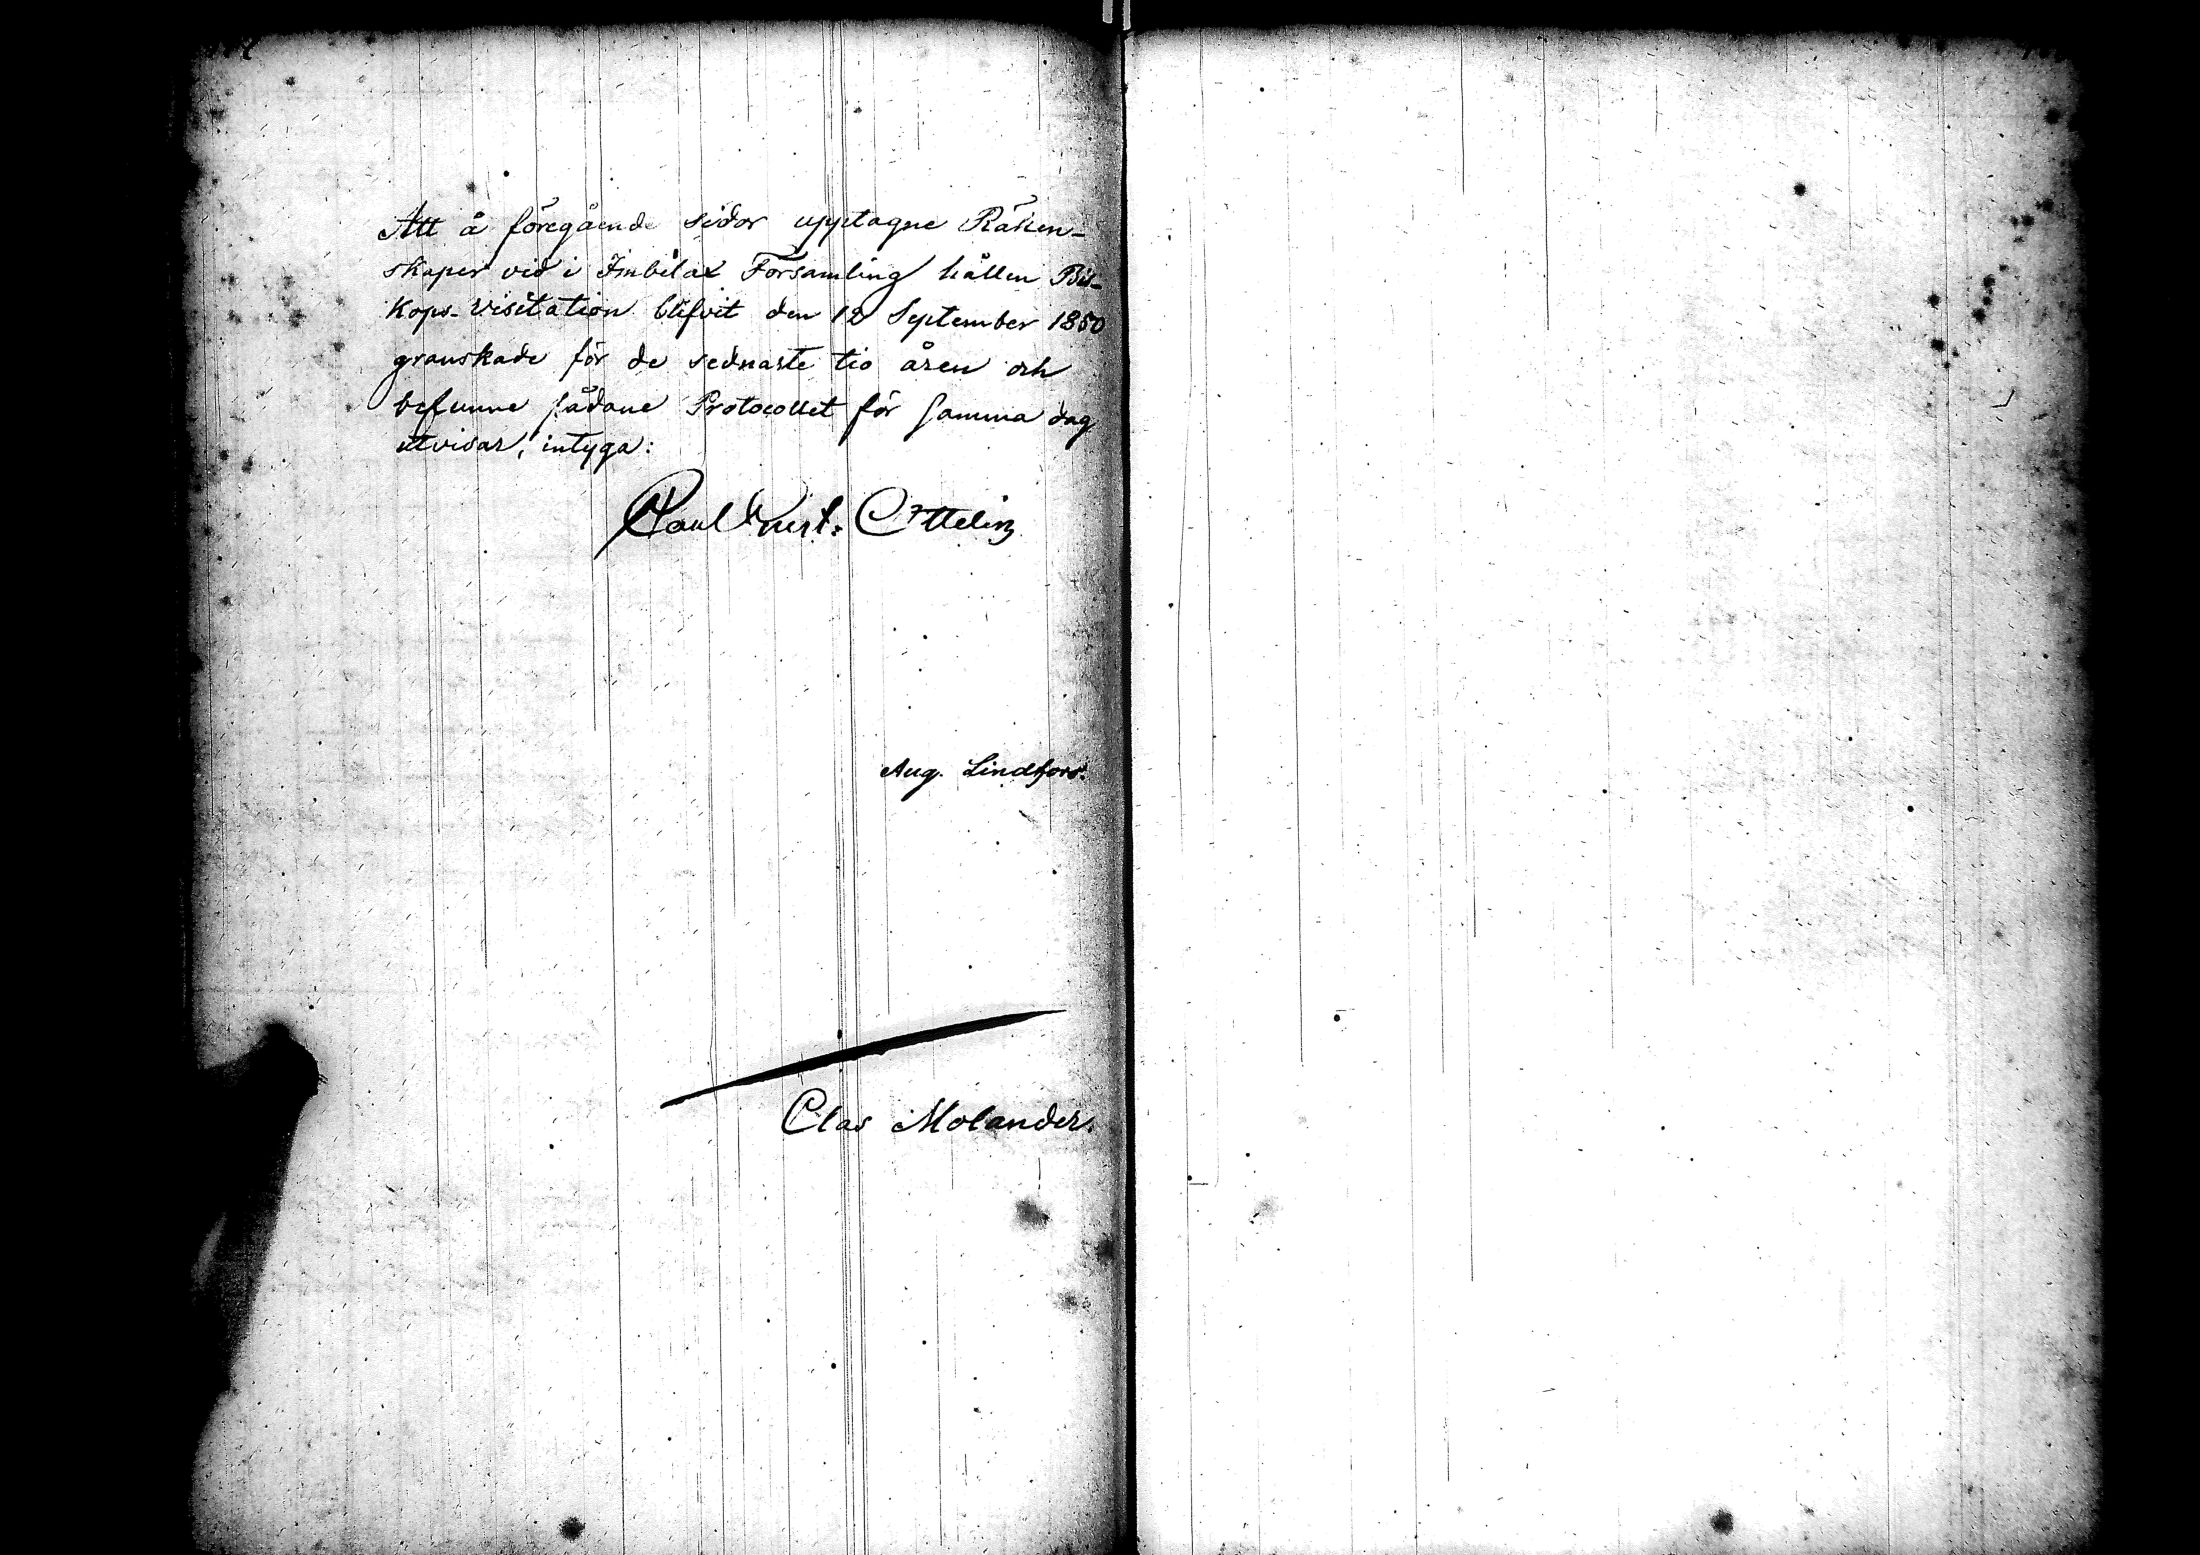 Att å föregående sidor upptagne Räken-
skaper vid i Imbilax Församling hållen Bis-
kops-Visitation blifvit den 12 September 1850
granskade för de sednaste tio åren och
befunne sådane Protocollet för samma dag
utvisar, intyga:
Carl Gust. Ottelin
Aug. Lindfors.
Clas Molander.